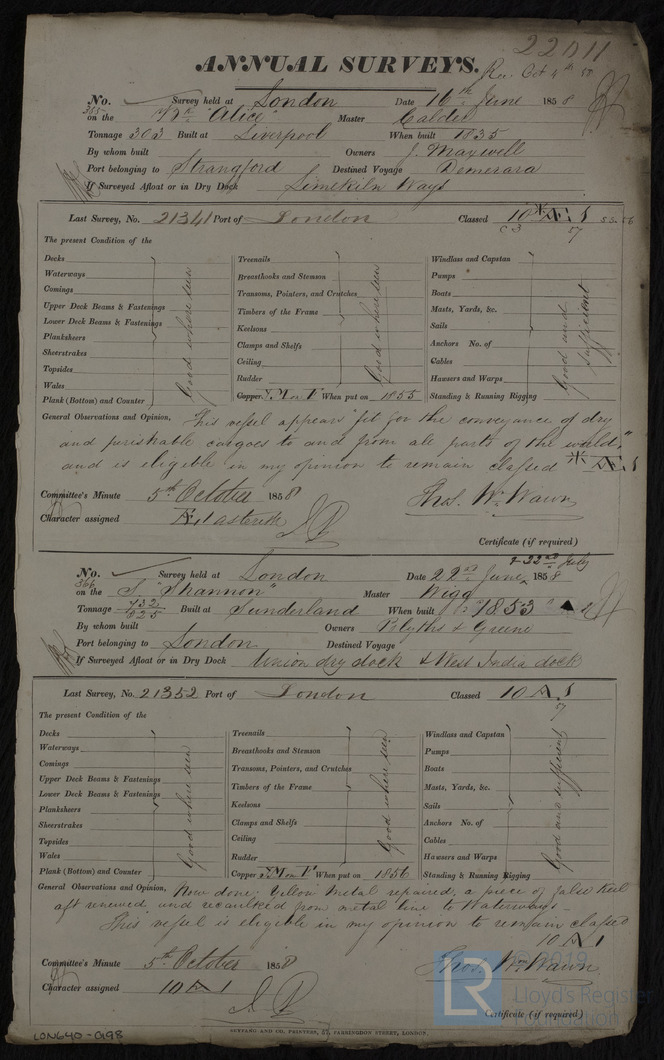 22011
ANNUAL SURVEYS.
Rec. Oct 4th 58
No. 365 Survey held at London Date 16th June 1858
on the Bk "Alice" Master Calder
Tonnage 303 Built at Liverpool When built 1835
By whom built Owners J. Maxwell
Port belonging to Strangford Destined Voyage Demerara
If Surveyed Afloat or in Dry Dock Limekiln Ways
Last Survey, No. 21341 Port of London Classed 10 * Æ 1
57
The present Condition of the
Decks Treenails Windlass and Capstan
Waterways Breasthooks and Stemson Pumps
Comings Transoms, Pointers, and Crutches Boats
Upper Deck Beams & Fastenings Timbers of the Frame Masts, Yards, &c.
Lower Deck Beams & Fastenings Keelsons Sails
Planksheers Clamps and Shelfs Anchors No. of
Sheerstrakes Ceiling Cables
Topsides Rudder Hawsers and Warps
Wales Copper YM on F When put on 1855 Standing & Running Rigging
Plank (Bottom) and Counter
Good where seen Good where seen Good and sufficient
General Observations and Opinion, This vessel appears "fit for the conveyance of dry
and perishable cargoes to and from all parts of the world,"
and is eligible in my opinion to remain classed * Æ 1
Committee's Minute 5th October 1858 Thos. Wm Wawn
Character assigned Æ 1 asterisk
Certificate (if required)
& 22nd July
No. 366 Survey held at London Date 22nd June 1858
on the S. "Shannon" Master Wigg
Tonnage 732/825 Built at Sunderland When built 1853
By whom built Owners Blyths & Greene
Port belonging to London Destined Voyage
If Surveyed Afloat or in Dry Dock Union dry dock & West India dock
Last Survey, No. 21352 Port of London Classed 10 A 1
57
The present Condition of the
Decks Treenails Windlass and Capstan
Waterways Breasthooks and Stemson Pumps
Comings Transoms, Pointers, and Crutches Boats
Upper Deck Beams & Fastenings Timbers of the Frame Masts, Yards, &c.
Lower Deck Beams & Fastenings Keelsons Sails
Planksheers Clamps and Shelfs Anchors No. of
Sheerstrakes Ceiling Cables
Topsides Rudder Hawsers and Warps
Wales Copper YM on F When put on 1856 Standing & Running Rigging
Plank (Bottom) and Counter
Good where seen Good where seen Good and sufficient
General Observations and Opinion, Now done; Yellow Metal repaired, a piece of false keel
aft renewed and recaulked from metal line to Waterways.
This vessel is eligible in my opinion to remain classed
10 A 1
Committee's Minute 5th October 1858 Thos. Wm Wawn
Character assigned 10 A 1
Certificate (if required)
SEYFANG AND CO. PRINTERS, 57, FARRINGDON STREET, LONDON.
LON640-0198
© 2019
LR Lloyd's Register
Foundation